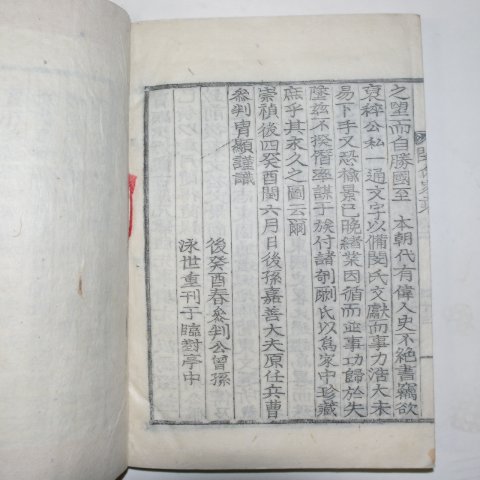 之望而自勝國至 本朝代有偉人史不絶書竊欲
裒稡公私一過文字以備閔氏文獻而事力浩大未
易下手又恐楡景已晩緖業因循而並事功歸於失
墜玆不揆僭率謀于族付諸剞劂氏以爲家中珍藏
庶乎其永久之圖云爾
崇禎後四癸酉閏六月日後孫嘉善大夫原任兵曹
參判胄顯謹識
後癸酉春參判公曾孫
泳世重刊于臨對亭中